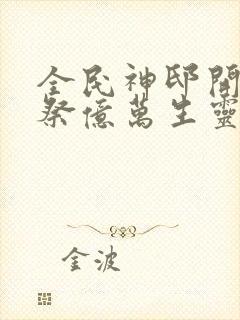 全民神邸開
祭億萬生靈
金波